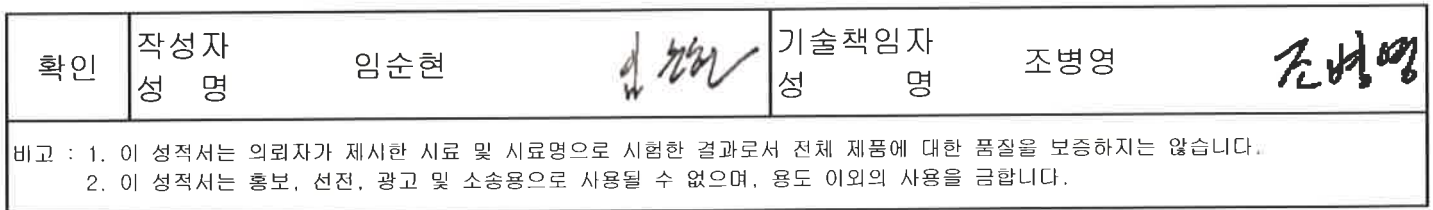 확인
작성자
성 명
임순현
임순현
기술책임자
성 명
조병영
조병영
비고 : 1. 이 성적서는 의뢰자가 제시한 시료 및 시료명으로 시험한 결과로서 전체 제품에 대한 품질을 보증하지는 않습니다.
2. 이 성적서는 홍보, 선전, 광고 및 소송용으로 사용될 수 없으며, 용도 이외의 사용을 금합니다.